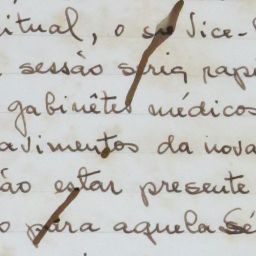 itual, o sr Vice-
sessão seria rapi
gabinêtes médicos
avimentos da nova
ão estar presente
o para aquela Sé